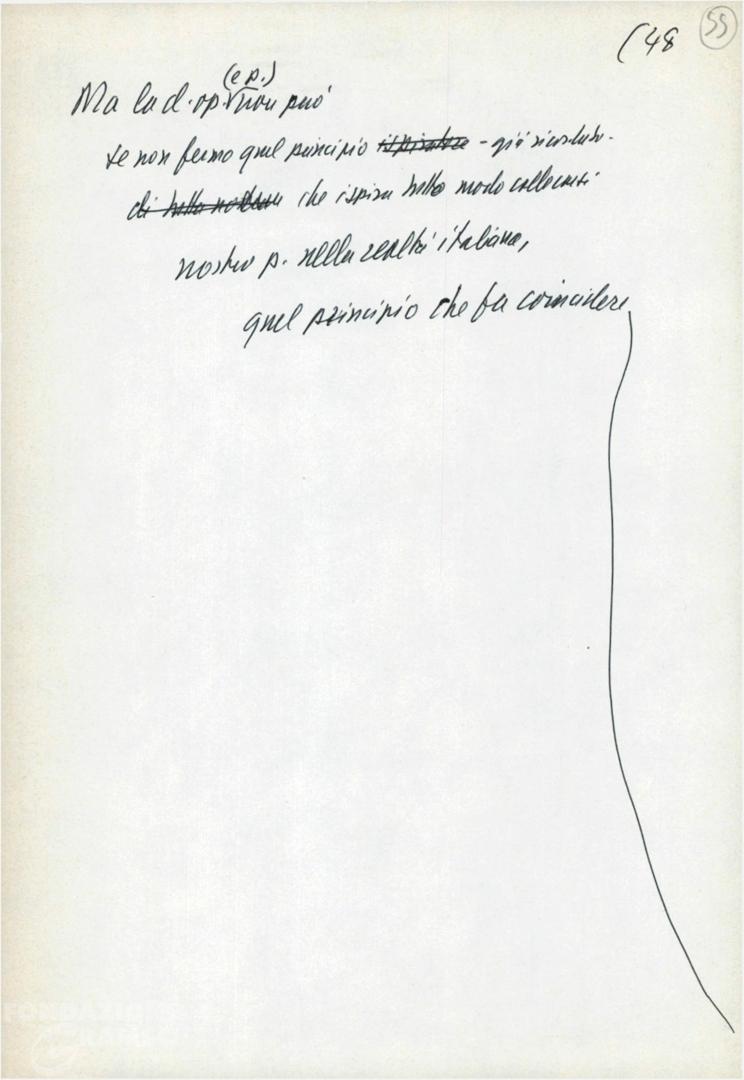 (48
55
(e p.)
Ma la d. op. non può
se non fermo quel principio ispiratore - già ricordato -
di tutto che ispira tutto modo collocarsi
nostro p. nella realtà italiana,
quel principio che fa coincidere
FONDAZIONE
GRAMSCI